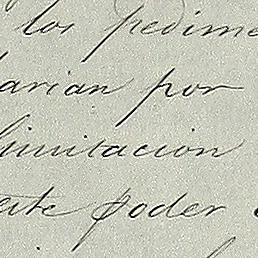 los pedime
arian por
limitacion
este poder